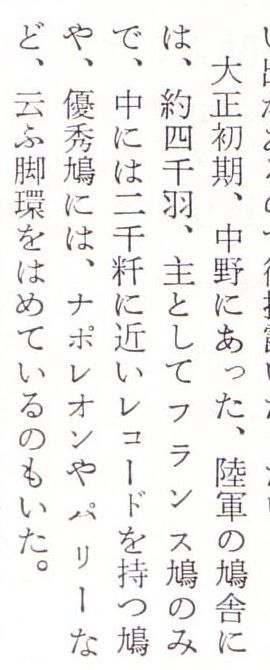 大正初期、中野にあった、陸軍の鳩舎に
は、約四千羽、主としてフランス鳩のみ
で、中には二千粁に近いレコードを持つ鳩
や、優秀鳩には、ナポレオンやパリーな
ど、云ふ脚環をはめているのもいた。